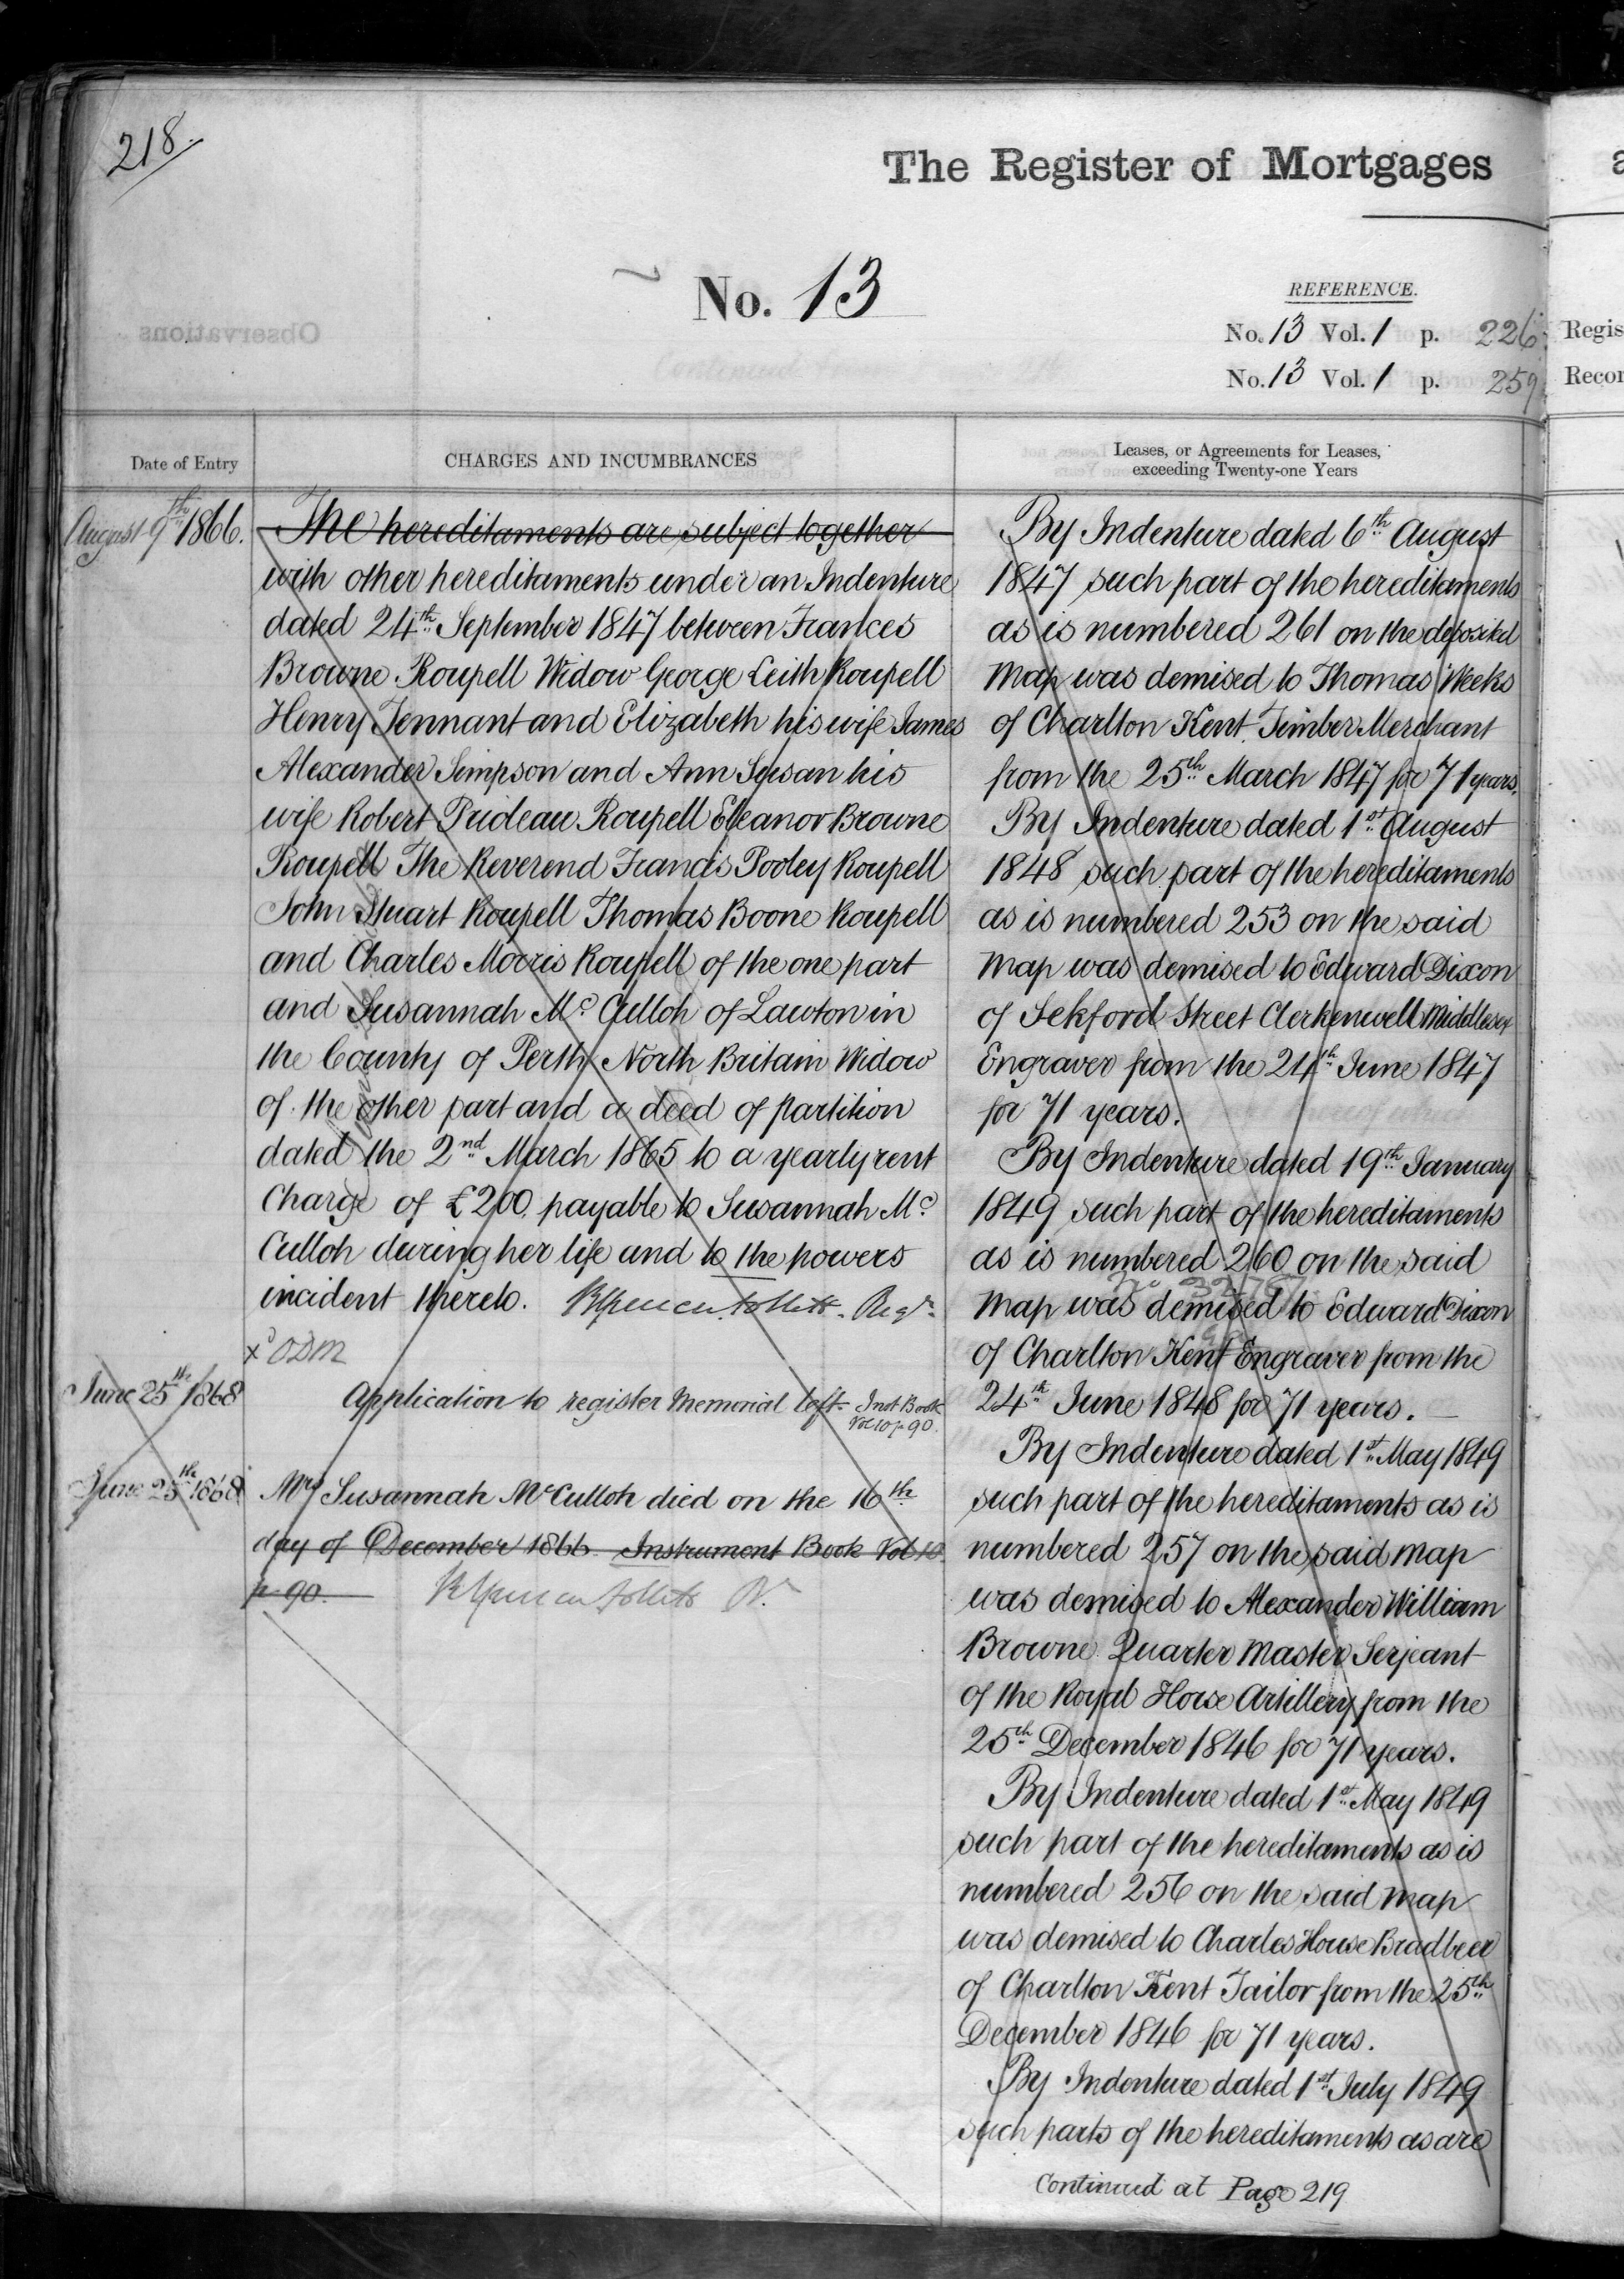 218.
The Register of Mortgages
No. 13
REFERENCE.
No. 13 Vol. 1 p. 226
No. 13 Vol. 1 p. 259
Regis
Recor
Date of Entry
CHARGES AND INCUMBRANCES
Leases, or Agreements for Leases,
exceeding Twenty-one Years
August 9th 1866.
The hereditaments are subject together
with other hereditaments under an Indenture
dated 24th September 1847 between Frances
Browne Roupell Widow George Leith Roupell
Henry Tennant and Elizabeth his wife James
Alexander Simpson and Ann Susan his
wife Robert Prideau Roupell Eleanor Browne
Roupell The Reverend Francis Pooley Roupell
John Stuart Roupell Thomas Boone Roupell
and Charles Morris Roupell of the one part
and Susannah Mc Culloh of Lawton in
the County of Perth North Britain Widow
of the other part and a deed of partition
dated the 2nd March 1865 to a yearly rent
Charge of £200 payable to Susannah Mc
Culloh during her life and to the powers
incident thereto. Regr.
xd ODM
June 25th 1868
Application to register Memorial left. Inst Book
Vol 10 p 90.
June 25th 1868
Mrs Susannah McCulloh died on the 16th
day of December 1866. Instrument Book Vol 10
p. 90. R.
By Indenture dated 6th August
1847 such part of the hereditaments
as is numbered 261 on the deposited
Map was demised to Thomas Weeks
of Charlton Kent Timber Merchant
from the 25th March 1847 for 71 years.
By Indenture dated 1st August
1848 such part of the hereditaments
as is numbered 253 on the said
Map was demised to Edward Dixon
of Sekford Street Clerkenwell Middlesex
Engraver from the 24th June 1847
for 71 years.
By Indenture dated 19th January
1849 such part of the hereditaments
as is numbered 260 on the said
Map was demised to Edward Dixon
of Charlton Kent Engraver from the
24th June 1848 for 71 years.
By Indenture dated 1st May 1849
such part of the hereditaments as is
numbered 257 on the said Map
was demised to Alexander William
Browne Quarter Master Serjeant
of the Royal Horse Artillery from the
25th December 1846 for 71 years.
By Indenture dated 1st May 1849
such part of the hereditaments as is
numbered 256 on the said Map
was demised to Charles House Bradbeer
of Charlton Kent Tailor from the 25th
December 1846 for 71 years.
By Indenture dated 1st July 1849
such parts of the hereditaments as are
Continued at Page 219